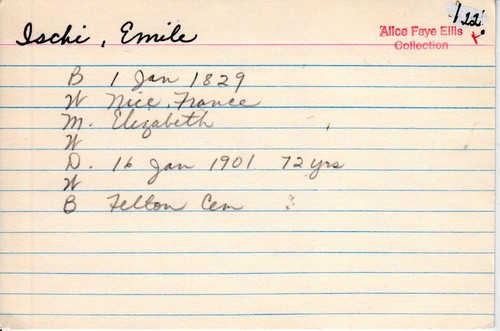 Ischi, Emile
Alice Faye Ellis
Collection
122
B 1 Jan 1829
W Nice, France
M. Elizabeth
W
D. 16 Jan 1901 72 yrs
W
B Felton Cem ?